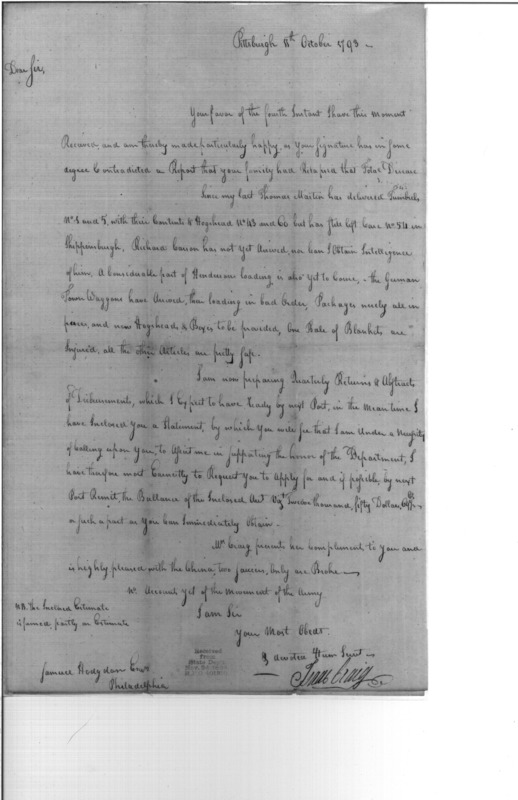 Pittsburgh 11th October 1793
Dear Sir,
Your favor of the fourth Instant I have this moment
Received, and am thereby made particularly happy, as your signature has in some
degree Contradicted a Report that your family had Relapsed that Fatal Disease
Since my last Thomas Martin has delivered Tumbrels
No. 1 and 5, with their Contents & Hogshead No. 43 and 60 but has still left Case No. 54 in
Shippensburgh, Richard Carson has not yet Arrived, nor Can I Obtain Intelligence
of him. A Considerable part of Hendersons loading is also yet to Come, - the German
Town Waggons have Arrived, their loading in bad Order, Packages nearly all in
pieces, and new Hogsheads & Boxes to be provided, One Bale of Blankets are
Injured, all the other Articles are pretty safe.
I am now preparing Quarterly Returns & Abstracts
of Disbursments, which I Expect to have Ready by next Post, in the mean time I
have Inclosed you a Statement, by which you will see that I am Under a Necessity
of Calling upon You, to Assist me in supporting the honor of the Department, I
have therefore most Earnestly to Request You to Apply for and if possible, by next
Post Remit, the Ballance of the Inclosed, thousand, fifty Dollars,
or such a part as You Can Immediately Obtain.
Mrs. Craig presents her Complement, to You and
is highly pleased with the China, two saucers, Only are Broke
no Account yet of the Movement of the Army
NB. The Inclosed Estimate
is formed partly on Estimate
I am Sir
Your Most Obedt.
& devoted Hum Servt
Isaac Craig
Samuel Hodgdon Esqr.
Philadelphia